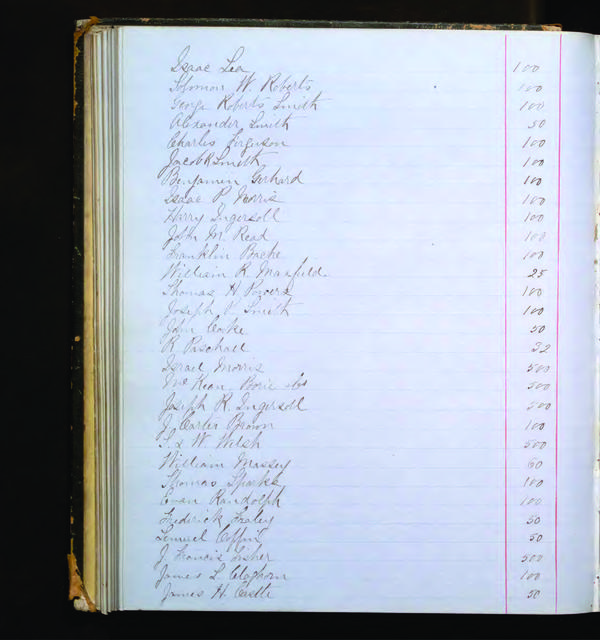 Isaac Lea 100
Solomon W. Roberts 100
George Roberts Smith 100
Alexander Smith 50
Charles Ferguson 100
Jacob R Smith 100
Benjamin Gerhard 100
Isaac P. Morris 100
Harry Ingersoll 100
John M. Read 100
Franklin Bache 100
William R. Maxfield 25
Thomas H Powers 100
Joseph P. Smith 100
John Cooke 50
R Paschall 32
Israel Morris 500
McKean Borie &Co 500
Joseph R. Ingersoll 500
J. Carter Brown 100
S. & W. Welsh 500
William Massey 50
Thomas Sparks 100
Evan Randolph 100
Frederick Fraley 50
Lemuel Coffin 50
J Francis Fisher 500
James L Claghorn 100
James H. Castle 50